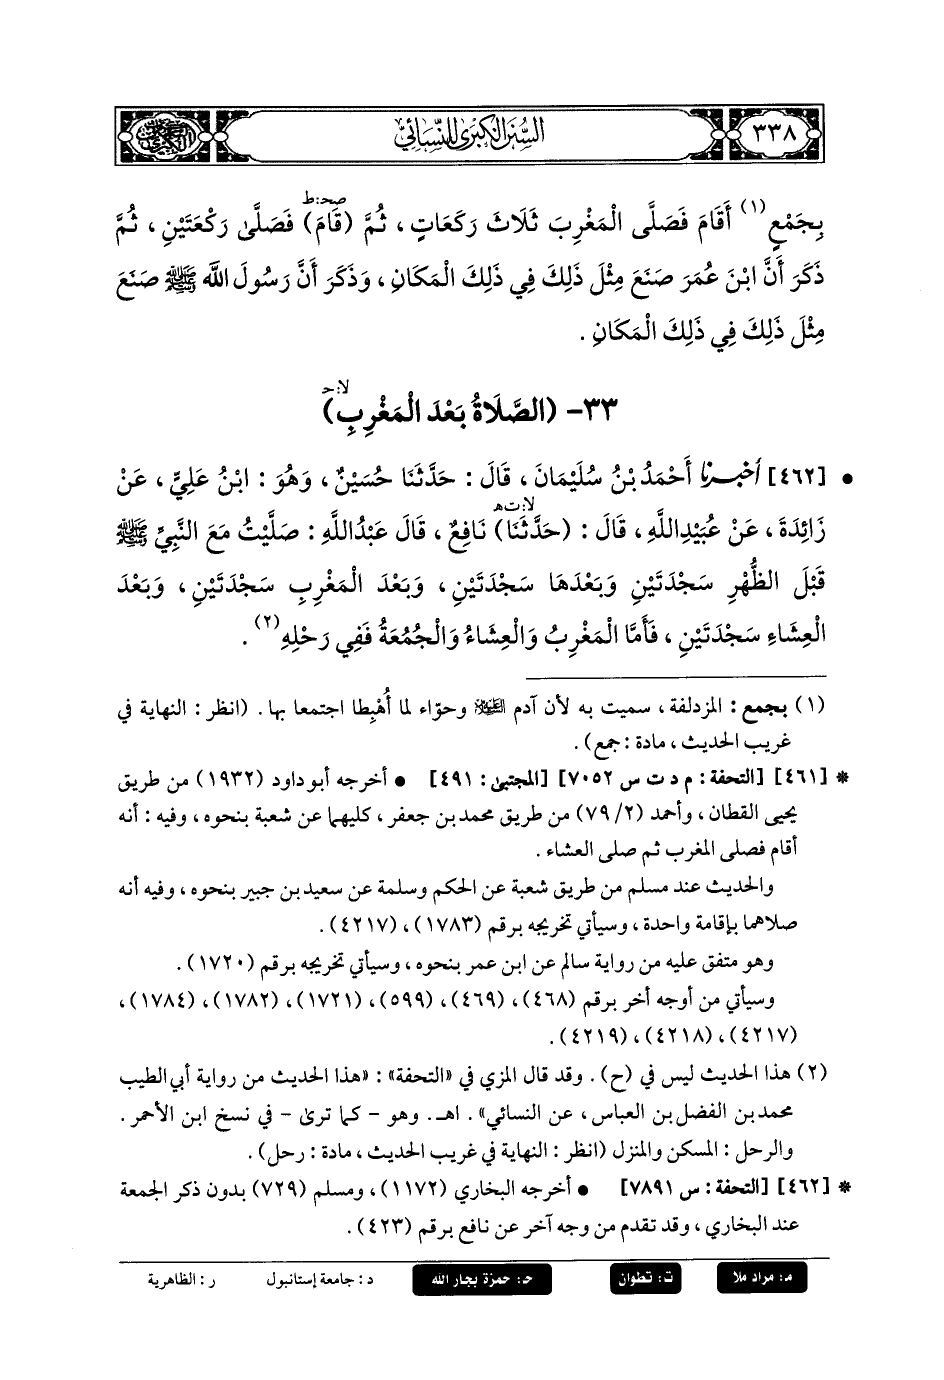 ٣٣٨
السنن الكبرى للنسائي
صحـ: ط
بِجَمْعٍ(١) أَقَامَ فَصَلَّى الْمَغْرِبَ ثَلَاثَ رَكَعَاتٍ، ثُمَّ (قَامَ) فَصَلَّىٰ رَكْعَتَيْنِ، ثُمَّ
ذَكَرَ أَنَّ ابْنَ عُمَرَ صَنَعَ مِثْلَ ذَلِكَ فِي ذَلِكَ الْمَكَانِ، وَذَكَرَ أَنَّ رَسُولَ اللَّه ﷺ صَنَعَ
مِثْلَ ذَلِكَ فِي ذَلِكَ الْمَكَانِ.
لا: حـ
٣٣- (الصَّلَاةُ بَعْدَ الْمَغْرِبِ)
• [٤٦٢] أخبرنا أَحْمَدُ بْنُ سُلَيْمَانَ، قَالَ: حَدَّثَنَا حُسَيْنٌ، وَهُوَ: ابْنُ عَلِيٍّ، عَنْ
لا: ت هـ
زَائِدَةَ، عَنْ عُبَيْدِاللَّهِ، قَالَ: (حَدَّثَنَا) نَافِعٌ، قَالَ عَبْدُاللَّهِ: صَلَّيْتُ مَعَ النَّبِيِّ ﷺ
قَبْلَ الظُّهْرِ سَجْدَتَيْنِ وَبَعْدَهَا سَجْدَتَيْنِ، وَبَعْدَ الْمَغْرِبِ سَجْدَتَيْنِ، وَبَعْدَ
الْعِشَاءِ سَجْدَتَيْنِ، فَأَمَّا الْمَغْرِبُ وَالْعِشَاءُ وَالْجُمُعَةُ فَفِي رَحْلِهِ(٢).
(١) بجمع: المزدلفة، سميت به لأن آدم عليه السلام وحوّاء لما أُهْبِطا اجتمعا بها. (انظر: النهاية في
غريب الحديث، مادة: جمع).
* [٤٦١] [التحفة: م د ت س ٧٠٥٢] [المجتبىٰ: ٤٩١] • أخرجه أبو داود (١٩٣٢) من طريق
يحيى القطان، وأحمد (٢/ ٧٩) من طريق محمد بن جعفر، كليهما عن شعبة بنحوه، وفيه: أنه
أقام فصلى المغرب ثم صلى العشاء.
والحديث عند مسلم من طريق شعبة عن الحكم وسلمة عن سعيد بن جبير بنحوه، وفيه أنه
صلاهما بإقامة واحدة، وسيأتي تخريجه برقم (١٧٨٣)، (٤٢١٧).
وهو متفق عليه من رواية سالم عن ابن عمر بنحوه، وسيأتي تخريجه برقم (١٧٢٠).
وسيأتي من أوجه أخر برقم (٤٦٨)، (٤٦٩)، (٥٩٩)، (١٧٢١)، (١٧٨٢)، (١٧٨٤)،
(٤٢١٧)، (٤٢١٨)، (٤٢١٩).
(٢) هذا الحديث ليس في (ح). وقد قال المزي في «التحفة»: «هذا الحديث من رواية أبي الطيب
محمد بن الفضل بن العباس، عن النسائي». اهـ. وهو - كما ترىٰ - في نسخ ابن الأحمر.
والرحل: المسكن والمنزل (انظر: النهاية في غريب الحديث، مادة: رحل).
* [٤٦٢] [التحفة: س ٧٨٩١] • أخرجه البخاري (١١٧٢)، ومسلم (٧٢٩) بدون ذكر الجمعة
عند البخاري، وقد تقدم من وجه آخر عن نافع برقم (٤٢٣).
مـ: مراد ملا ت: تطوان حـ: حمزة بجار الله د: جامعة إستانبول ر: الظاهرية